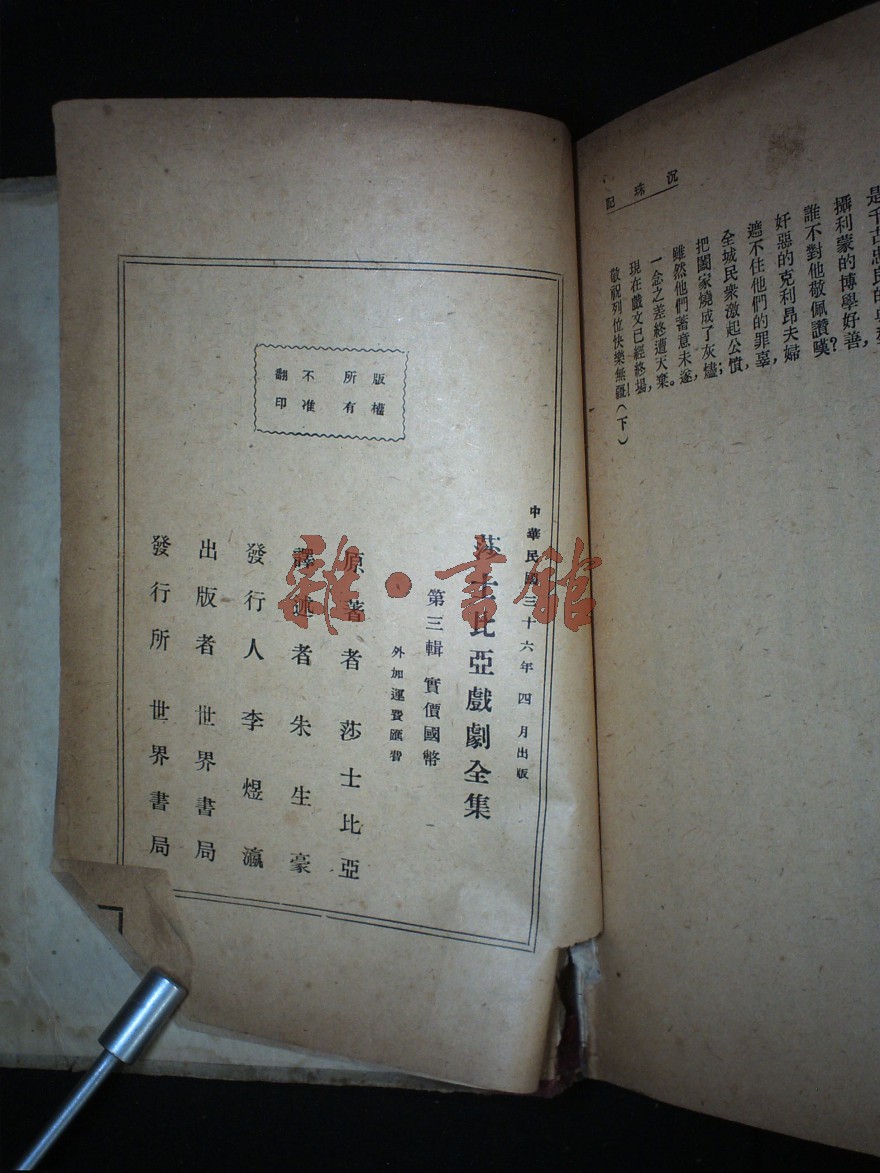 沉珠記
是千古忠良的
攝利蒙的博學好善,
誰不對他敬佩讚嘆?
奸惡的克利昂夫婦
遮不住他們的罪辜,
全城民衆激起公憤,
把闔家燒成了灰燼;
雖然他們蓄意未遂,
一念之差終遭天棄。
現在戲文已經終場,
敬祝列位快樂無疆!(下)
版權所有
不准翻印
中華民國三十六年四月出版
莎士比亞戲劇全集
第三輯 實價國幣
外加運費匯費
原著者 莎士比亞
譯述者 朱生豪
發行人 李煜瀛
出版者 世界書局
發行所 世界書局
雜·書館